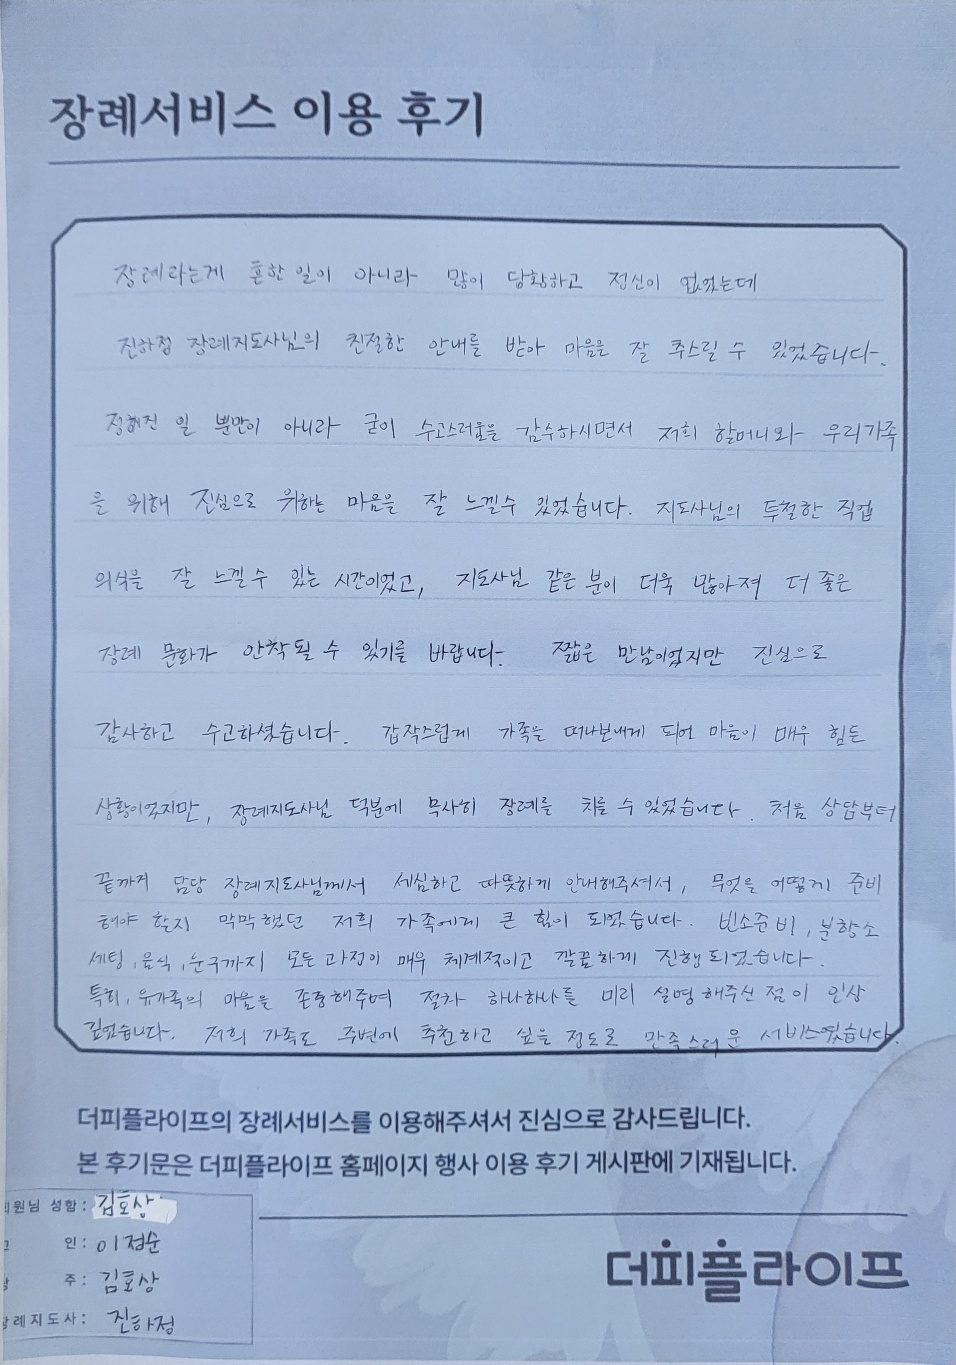 장례서비스 이용 후기
장례라는게 흔한 일이 아니라 많이 당황하고 정신이 없었는데
진하정 장례지도사님의 친절한 안내를 받아 마음을 잘 추스릴 수 있었습니다.
정해진 일 뿐만이 아니라 굳이 수고스러움을 감수하시면서 저희 할머니와 우리가족
을 위해 진심으로 위하는 마음을 잘 느낄수 있었습니다. 지도사님의 투철한 직업
의식을 잘 느낄 수 있는 시간이었고, 지도사님 같은 분이 더욱 많아져 더 좋은
장례 문화가 안착될 수 있기를 바랍니다. 짧은 만남이었지만 진심으로
감사하고 수고하셨습니다. 갑작스럽게 가족을 떠나보내게 되어 마음이 매우 힘든
상황이었지만, 장례지도사님 덕분에 무사히 장례를 치를 수 있었습니다. 처음 상담부터
끝까지 담당 장례지도사님께서 세심하고 따뜻하게 안내해주셔서, 무엇을 어떻게 준비
해야 할지 막막했던 저희 가족에게 큰 힘이 되었습니다. 빈소준비, 분향소
세팅, 음식, 문구까지 모든 과정이 매우 체계적이고 깔끔하게 진행되었습니다.
특히, 유가족의 마음을 존중해주며 절차 하나하나를 미리 설명해주신 점이 인상
깊었습니다. 저희 가족도 주변에 추천하고 싶을 정도로 만족스러운 서비스였습니다.
더피플라이프의 장례서비스를 이용해주셔서 진심으로 감사드립니다.
본 후기문은 더피플라이프 홈페이지 행사 이용 후기 게시판에 기재됩니다.
회원님 성함: 김호상
고 인: 이점순
상 주: 김호상
장례지도사: 진하정
더피플라이프